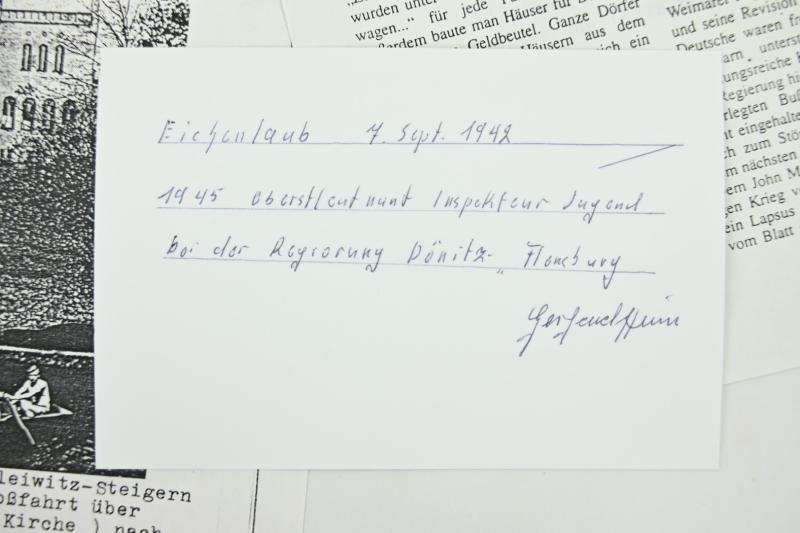 wurden unter
wagen..." für jede
baute man Häuser für
Geldbeutel. Ganze Dörfer
Häusern aus dem
ein
und seine Revision
Deutsche waren
unterst
Regierung
zum
m nächsten
em John M
gen Krieg
ein Lapsus
vom Blatt
Eichenlaub 7. Sept. 1942
1945 Oberstleutnant Inspekteur Jugend
bei der Regierung Dönitz- "Flensburg
leiwitz-Steigern
oßfahrt über
Kirche ) nach